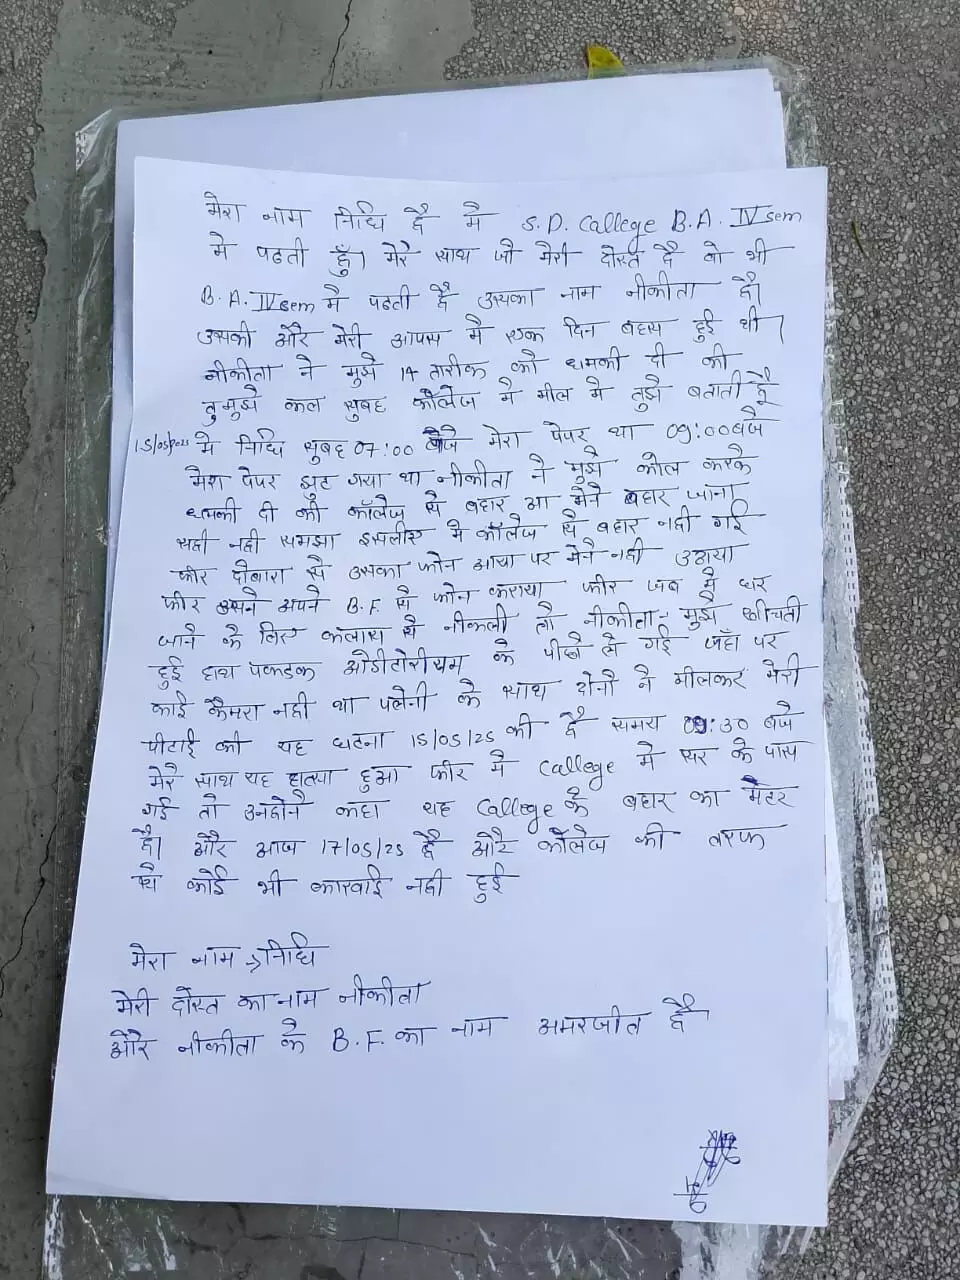 मेरा नाम निधि है मै S.D. College B.A. IV sem
मे पढती हूँ। मेरे साथ जो मेरी दोस्त है वो भी
B.A. IV sem मै पढती है उसका नाम नीकीता है।
उसकी और मेरी आपस मे एक दिन बहस हुई थी।
नीकीता ने मुझे 14 तारीक को धमकी दी की
तु मुझे कल सुबह कॉलेज मे मील मे तुझे बताती हूँ
15/05/2025 मे निधि सुबह 07:00 बजे मेरा पेपर था 09:00 बजे
मेरा पेपर छुट गया था नीकीता ने मुझे कोल करके
धमकी दी की कॉलेज से बहार आ मेने बहार जाना
सही नही समझा इसलीए मे कॉलेज से बहार नही गई
फीर दोबारा से उसका फोन आया पर मेने नही उठाया
फीर उसने अपने B.F. से फोन कराया फीर जब मे घर
जाने के लिए कलास से नीकली तो नीकीता मुझे खीचती
हुई हाथ पकडक ओडीटोरीयम के पीछे ले गई जहाँ पर
काई कैमरा नही था पलेनी के साथ दोनो ने मीलकर मेरी
पीटाई की यह घटना 15/05/25 की है समय 09:30 बजे
मेरे साथ यह हुआ फीर मे College मे सर के पास
गई तो उनहोने कहा यह College के बहार का मेटर
है। और आज 17/05/25 है और कॉलेज की तरफ
से कोई भी कारवाई नही हुई
मेरा नाम → निधि
मेरी दोस्त का नाम नीकीता
और नीकीता के B.F. का नाम अमरजीत है